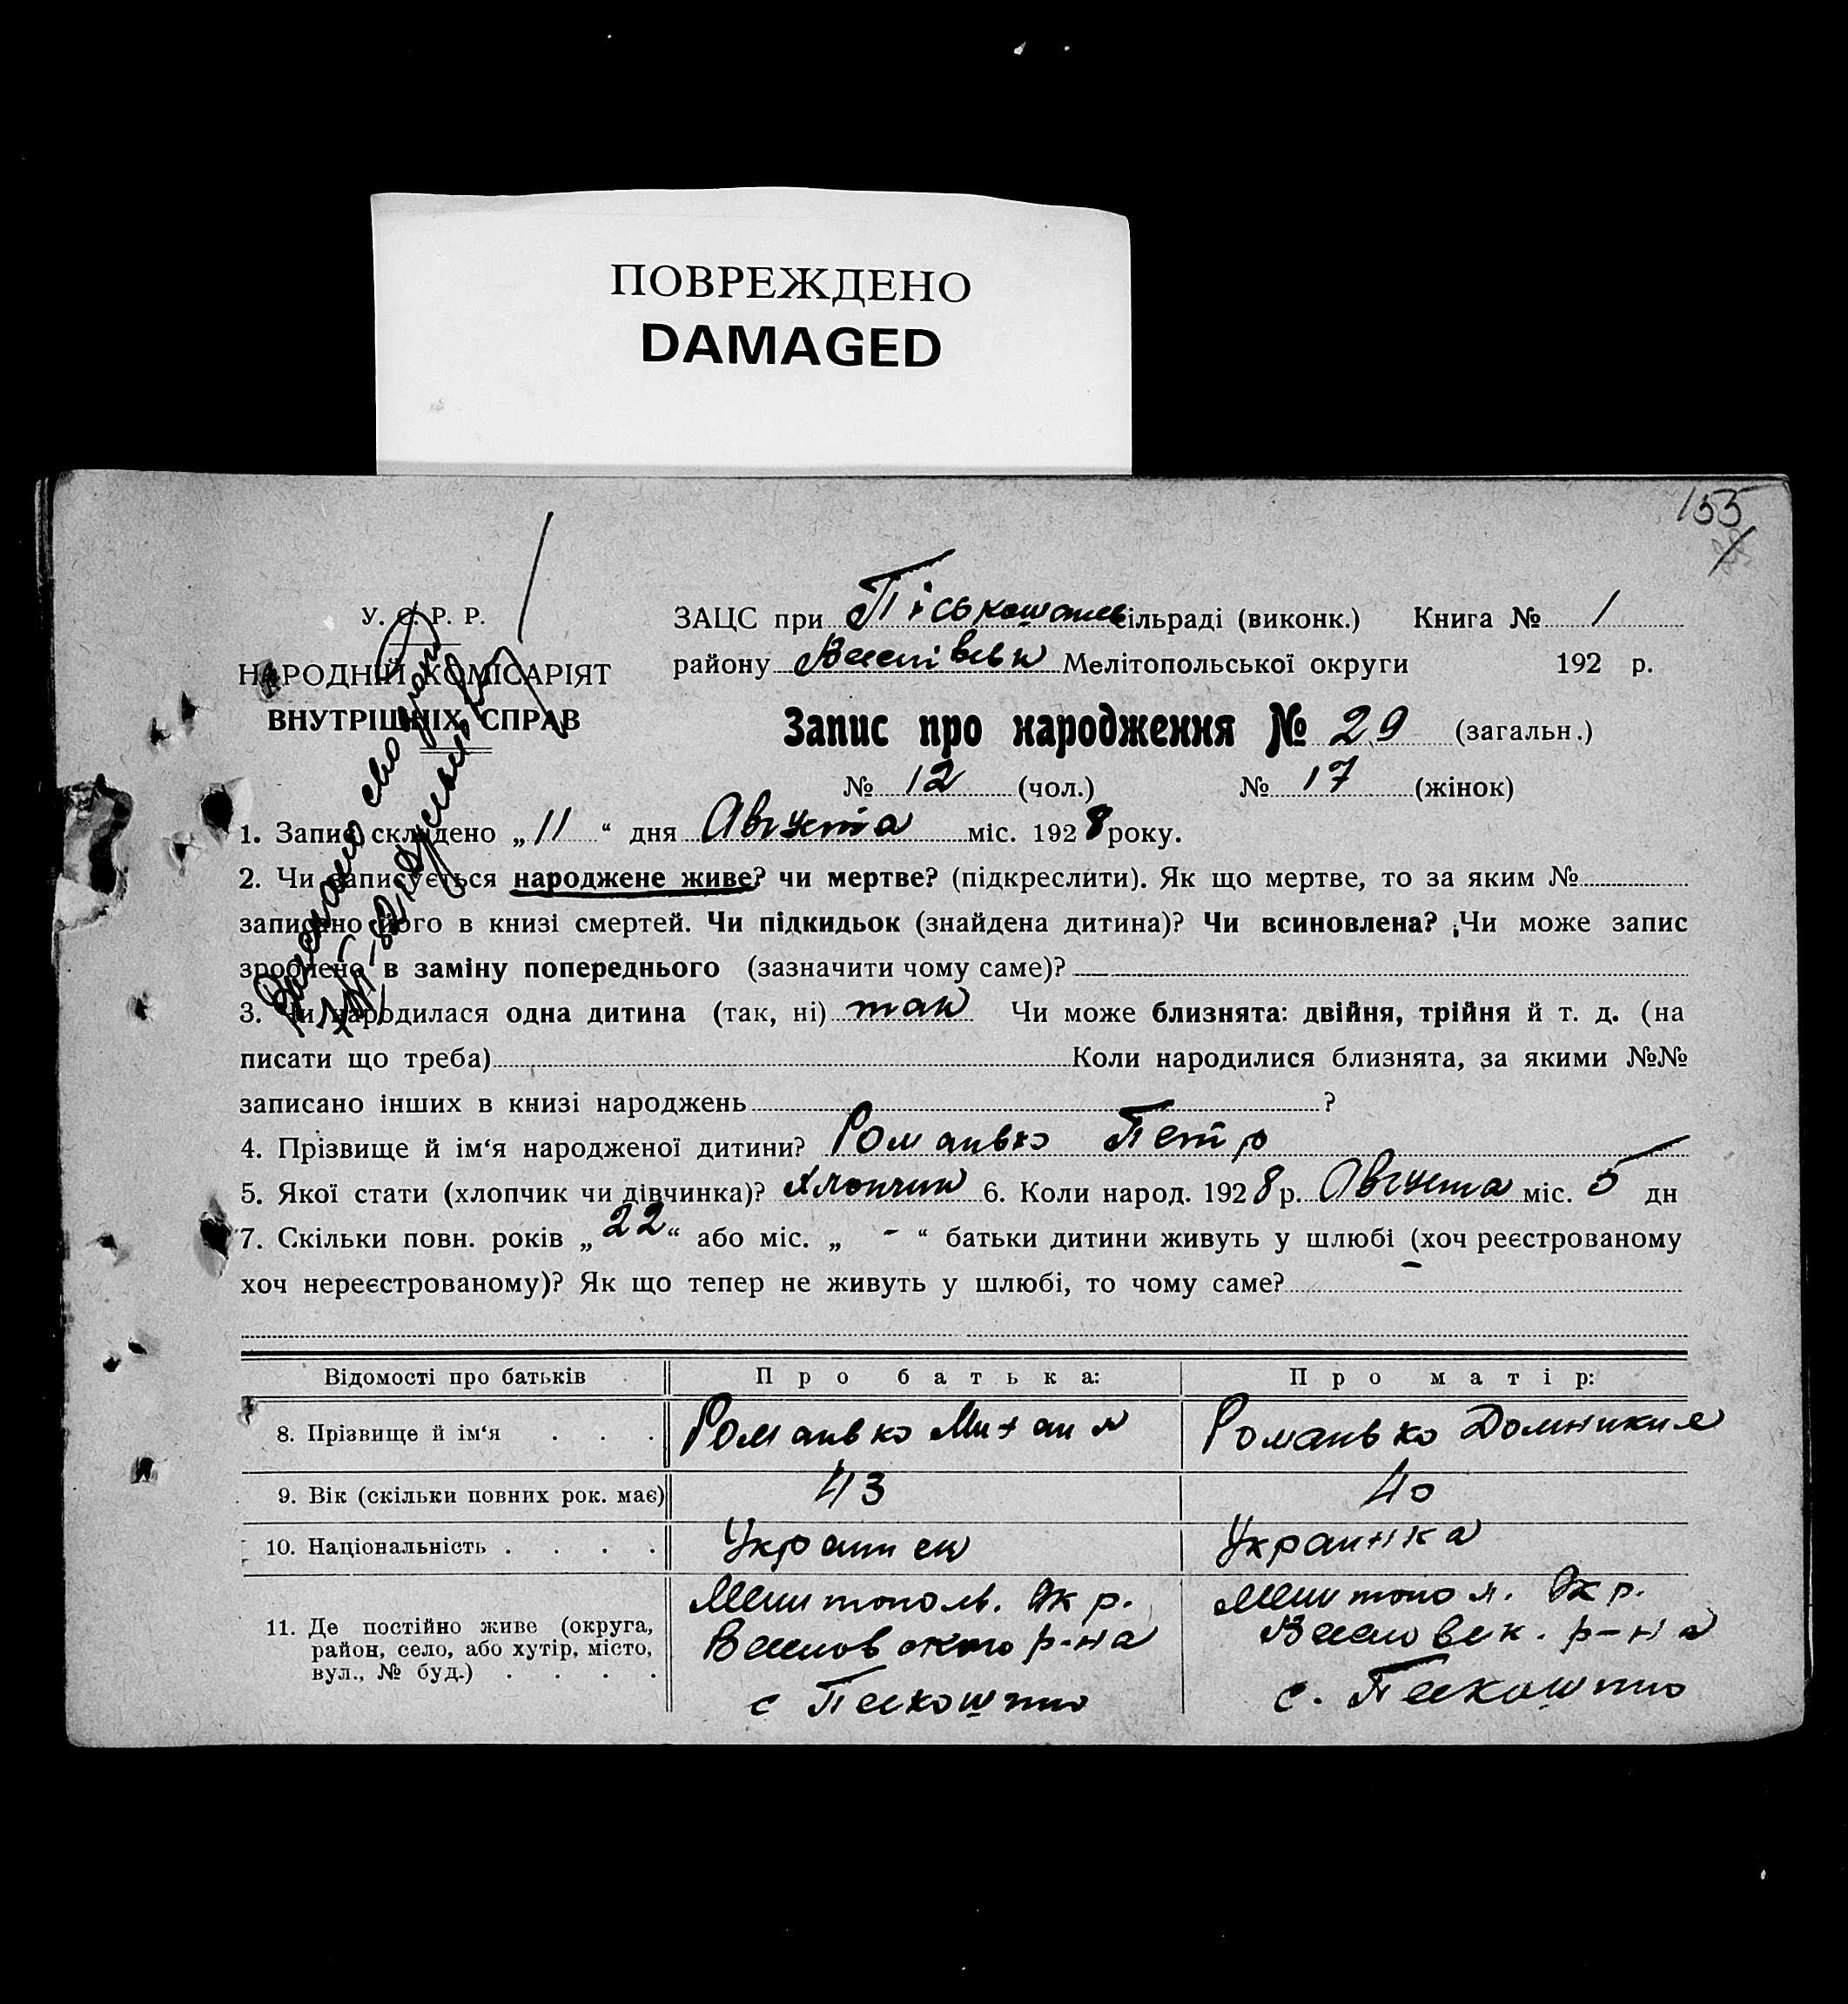 ПОВРЕЖДЕНО
DAMAGED
155
У. С. Р. Р.
НАРОДНІЙ КОМІСАРІЯТ
ВНУТРІШНІХ СПРАВ
ЗАЦС при Піськошинс сільраді (виконк.) Книга № 1
району Васлівськ Мелітопольської округи 192 р.
Запис про народження № 29 (загальн.)
№ 12 (чол.) № 17 (жінок)
1. Запис складено „ 11 “ дня Августа міс. 1928 року.
2. Чи записується народжене живе? чи мертве? (підкреслити). Як що мертве, то за яким №
записано його в книзі смертей. Чи підкидьок (знайдена дитина)? Чи всиновлена? Чи може запис
зроблено в заміну попереднього (зазначити чому саме)?
3. Чи народилася одна дитина (так, ні) так Чи може близнята: двійня, трійня й т. д. (на
писати що треба) Коли народилися близнята, за якими №№
записано інших в книзі народжень ?
4. Прізвище й ім‘я народженої дитини? Романько Петр
5. Якої стати (хлопчик чи дівчинка)? хлопчик 6. Коли народ. 1928 р. Августа міс. 5 дн
7. Скільки повн. років „ 22 “ або міс. „ - “ батьки дитини живуть у шлюбі (хоч реєстрованому
хоч нереєстрованому)? Як що тепер не живуть у шлюбі, то чому саме?
Відомості про батьків Про батька: Про матір:
8. Прізвище й ім‘я . . . Романько Михаил Романько Домникия
9. Вік (скільки повних рок. має) 43 40
10. Національність . . . . Украинец Украинка
11. Де постійно живе (округа, район, село, або хутір, місто, вул., № буд.) . . . .
Мелитополь. Окр.
р-на
с Пескошино
Мелитопол. Окр.
р-на
с. Пескошино